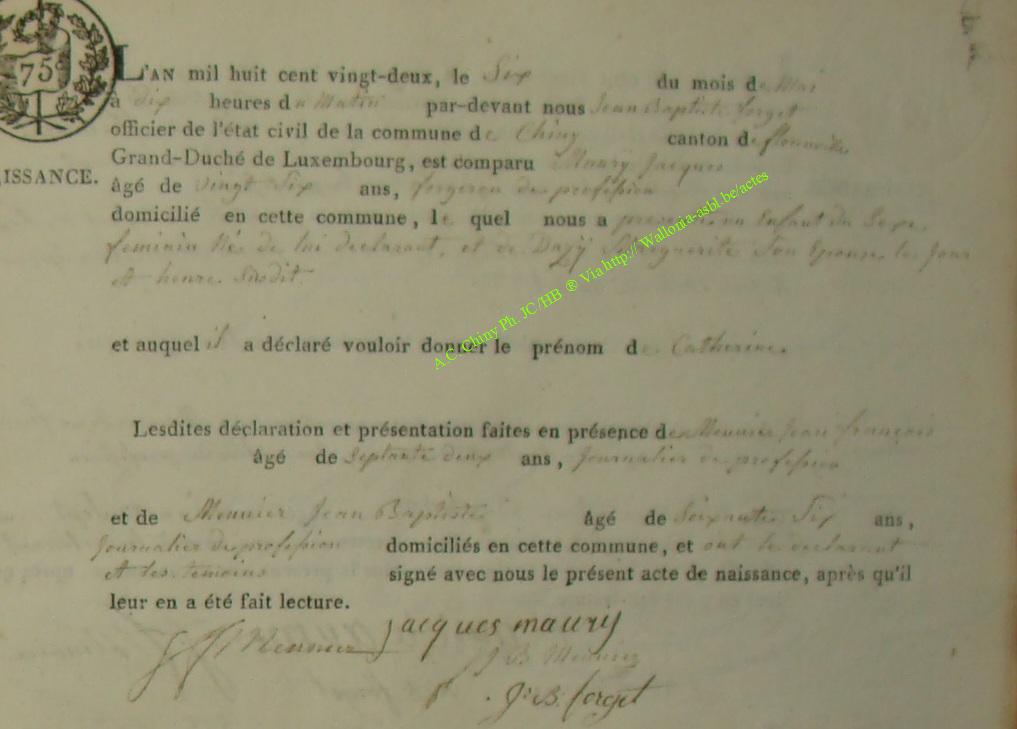 75
L'AN mil huit cent vingt-deux, le Six du mois de Mai
à dix heures du Matin par-devant nous Jean Baptiste forget
officier de l'état civil de la commune de Chiny canton de florenville
Grand-Duché de Luxembourg, est comparu Maury Jacques
ISSANCE.
âgé de vingt Six ans, forgeron de profession
domicilié en cette commune, le quel nous a présenté un Enfant du Sexe
feminin Né de lui declarant, et de Dazy Marguerite Son Epouse, les jour
et heure Susdit
et auquel il a déclaré vouloir donner le prénom de Catherine.
Lesdites déclaration et présentation faites en présence de Meunier Jean françois
âgé de Septante deux ans, Journalier de profession
et de Meunier Jean Baptiste âgé de Soixante Six ans,
Journalier de profession domiciliés en cette commune, et ont le declarant
et les temoins signé avec nous le présent acte de naissance, après qu'il
leur en a été fait lecture.
jacques maury
J f Meunier
J B Meunier
J. B. forget
A.C. Chiny Ph. JC/HB ® Via http:// Wallonia-asbl.be/actes